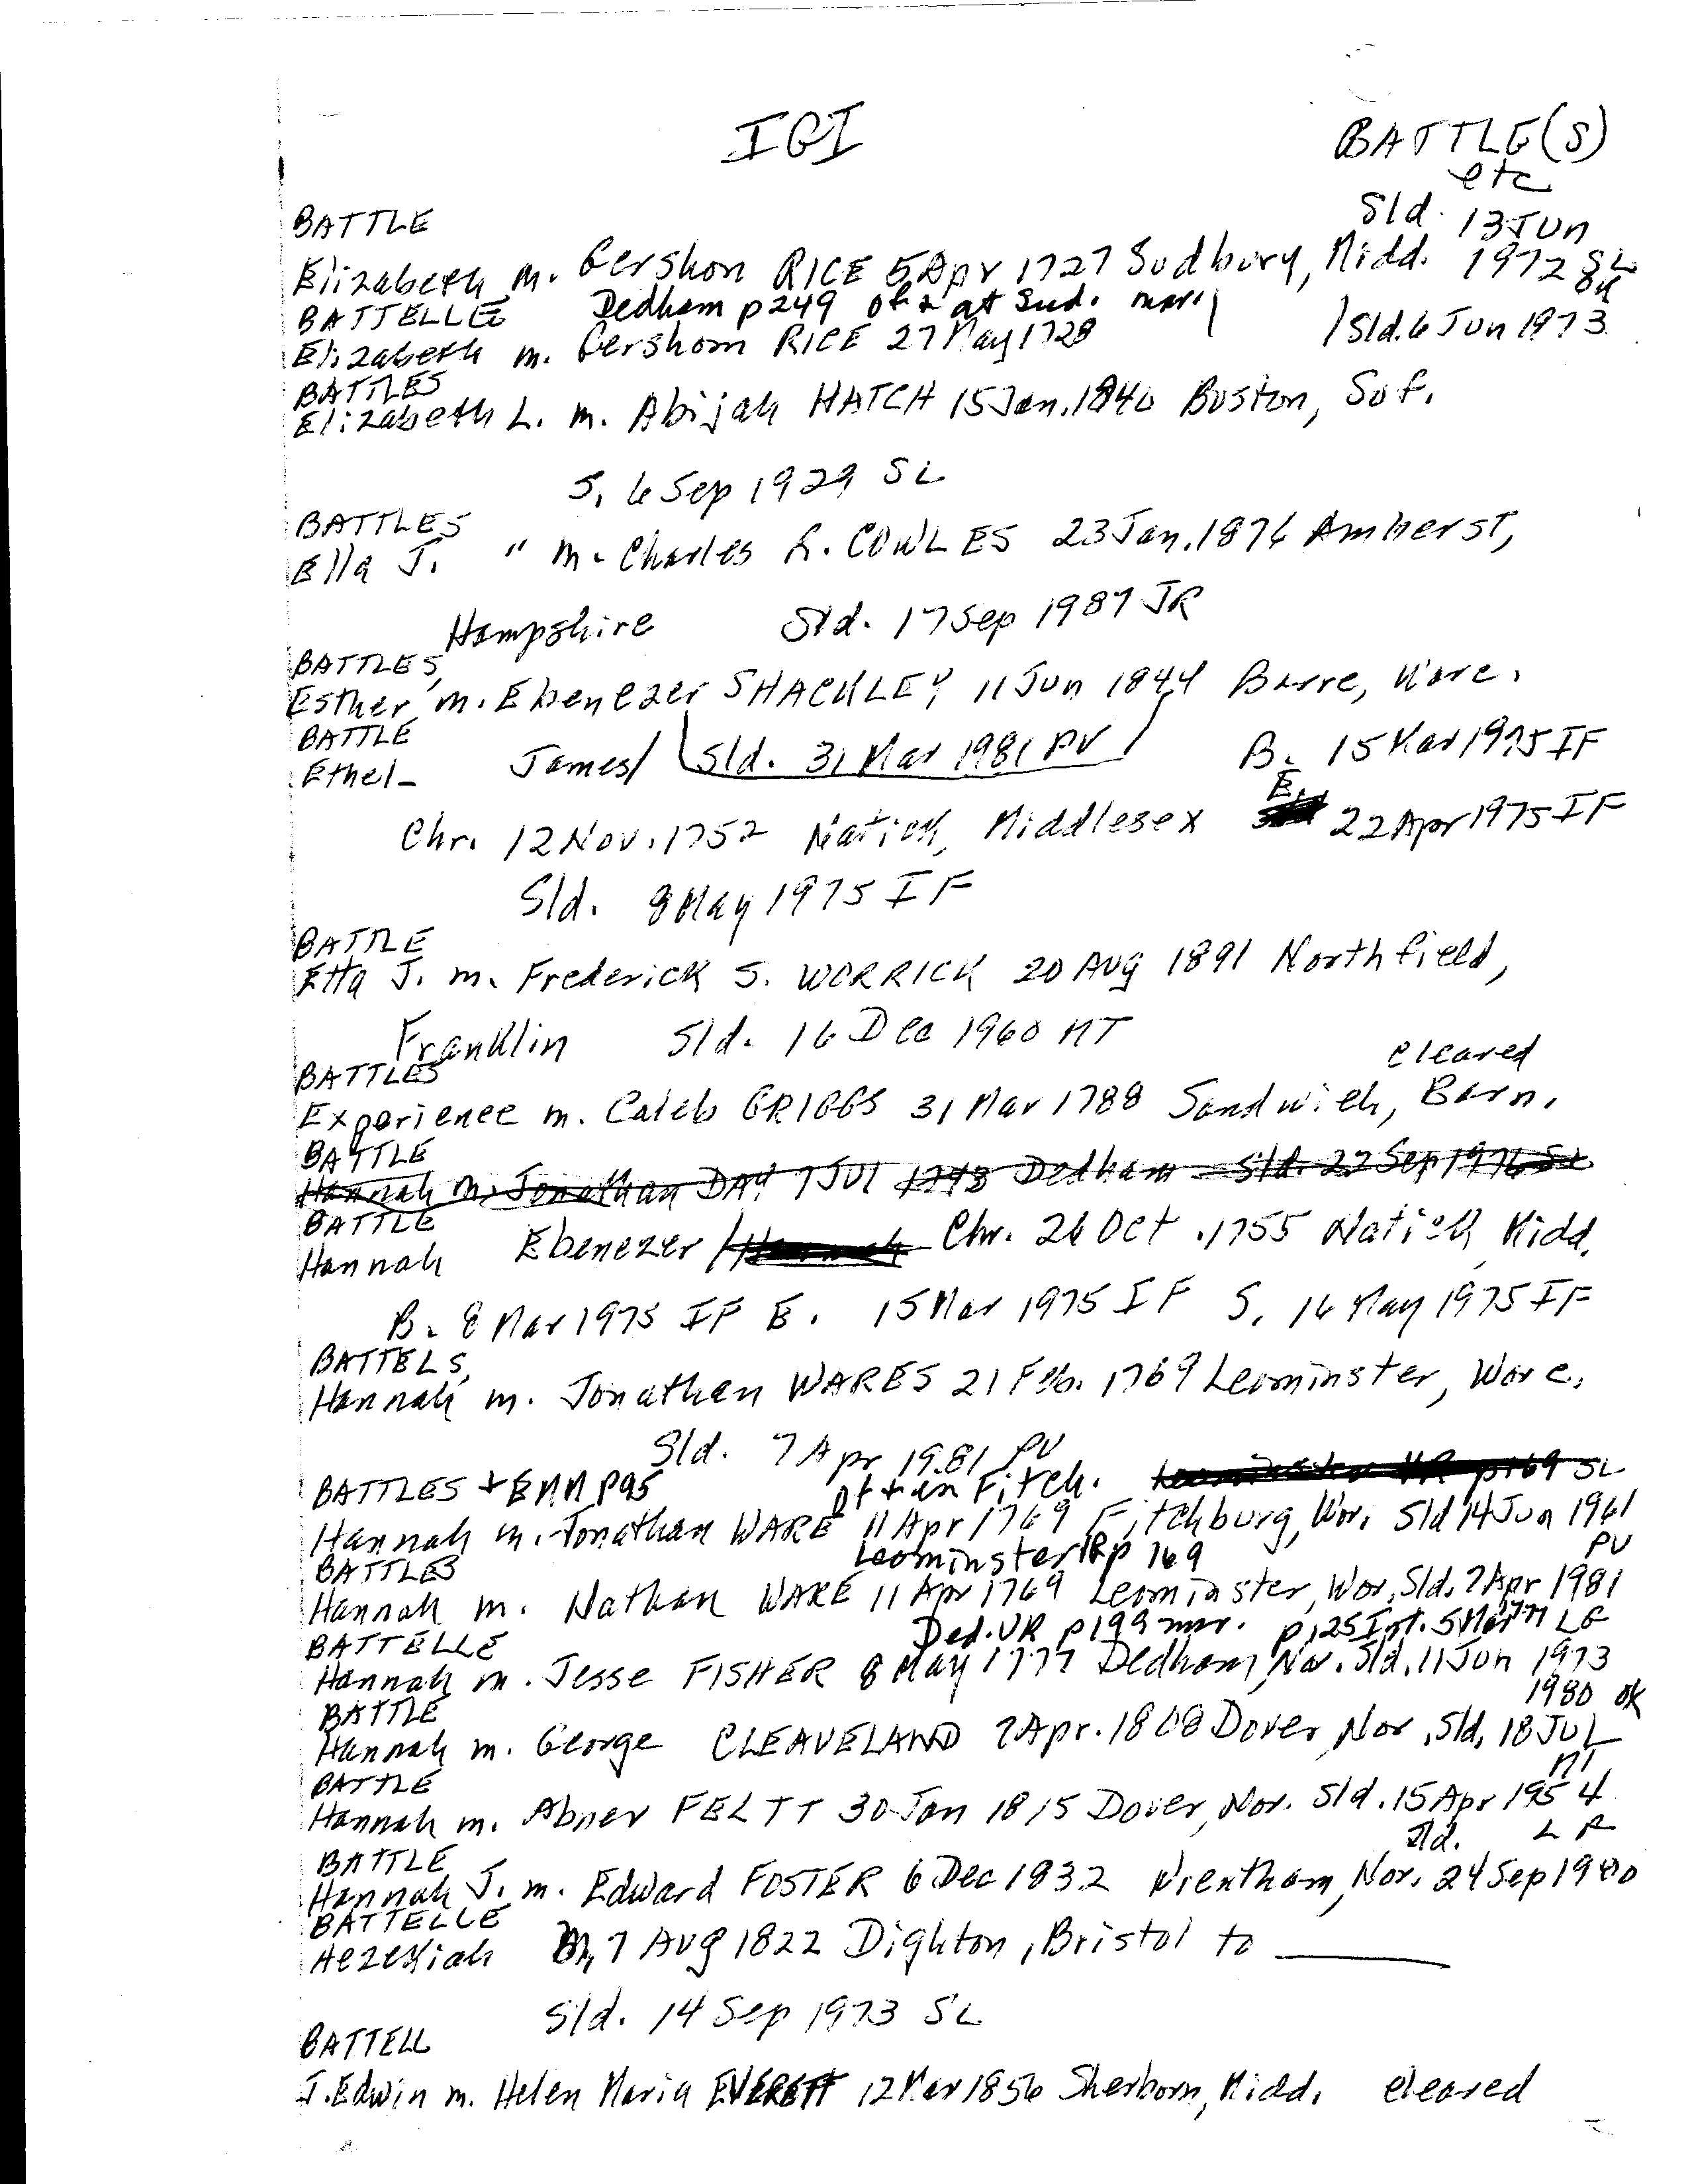 IGI
BATTLE(S)
etc
BATTLE
Sld. 13 Jun
Elizabeth m. Gershon RICE 5 Apr 1727 Sudbury, Midd. 1972 SL
BATTELLE Dedham p249 of & at Sud. marr
Elizabeth m. Gershom RICE 27 May 1728 / Sld. 6 Jun 1973
BATTLES
Elizabeth L. m. Abijah HATCH 15 Jan. 1840 Boston, Suf.
S. 6 Sep 1929 SL
BATTLES
Ella J. " m. Charles L. COWLES 23 Jan. 1876 Amherst,
Hampshire Sld. 17 Sep 1987 JR
BATTLES,
Esther m. Ebenezer SHACKLEY 11 Jun 1844 Barre, Worc.
BATTLE
Ethel- James/ Sld. 31 Mar 1981 PV B. 15 Mar 1975 IF
Chr. 12 Nov. 1752 Natick, Middlesex E. 22 Apr 1975 IF
Sld. 8 May 1975 IF
BATTLE
Etta J. m. Frederick S. WORRICK 20 Aug 1891 Northfield,
Franklin Sld. 16 Dec 1960 MT
BATTLES cleared
Experience m. Caleb GRIGGS 31 Mar 1788 Sandwich, Barn.
BATTLE
Hannah m. Jonathan DAY 7 Jul 1748 Dedham Sld. 22 Sep 1976 SL
BATTLE
Hannah Ebenezer / Chr. 26 Oct. 1755 Natick, Midd.
B. 8 Mar 1975 IF E. 15 Mar 1975 IF S. 16 May 1975 IF
BATTELS,
Hannah m. Jonathan WARES 21 Feb. 1769 Leominster, Worc.
Sld. 7 Apr 1981 PV
BATTLES + EMM p95 of & in Fitch. Leominster VR p169 SL
Hannah m. Jonathan WARE 11 Apr 1769 Fitchburg, Wor. Sld 14 Jun 1961
BATTLES Leominster VR p 169 PV
Hannah m. Nathan WARE 11 Apr 1769 Leominster, Wor. Sld. 7 Apr 1981
BATTELLE Ded. VR p199 mar. p125 Int. 5 Mar 1777 LG
Hannah m. Jesse FISHER 8 May 1777 Dedham, Nor. Sld. 11 Jun 1973
BATTLE 1980 OK
Hannah m. George CLEAVELAND 7 Apr. 1808 Dover, Nor. Sld. 18 JUL
BATTLE MT
Hannah m. Abner FELTT 30 Jan 1815 Dover, Nor. Sld. 15 Apr 1954
BATTLE Sld. LR
Hannah J. m. Edward FOSTER 6 Dec 1832 Wrentham, Nor. 24 Sep 1980
BATTELLE
Hezekiah m. 7 Aug 1822 Dighton, Bristol to
Sld. 14 Sep 1973 SL
BATTELL
J. Edwin m. Helen Maria EVERETT 12 Mar 1856 Sherborn, Midd. cleared